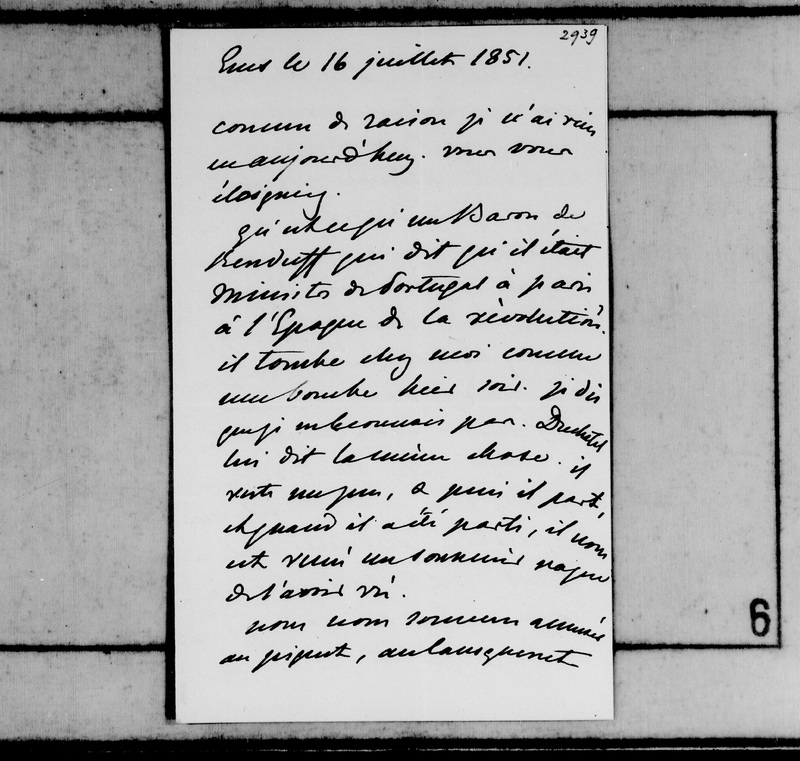 2939
Ems le 16 juillet 1851.
comme de raison je n'ai rien
eu aujourd'huy. vous vous
éloignez.
qu'est ce qu'un Baron de
Renduff qui dit qu'il était
Ministre de Portugal à paris
à l'Epoque de la révolution.
il tombe chez moi comme
une bombe hier soir. je dis
que je ne le connais pas. Duchatel
lui dit la même chose. il
reste un peu, & puis il part,
et quand il a été parti, il nous
est venu un souvenir vague
de l'avoir vu.
nous nous sommes amusés
au piquet, au lansquenet
6